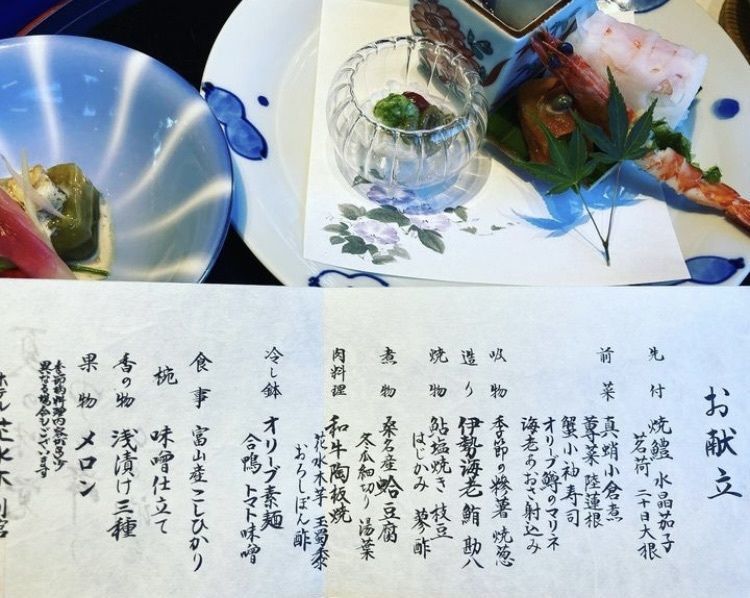 お献立
先付 焼鱧 水晶茄子
茗荷 二十日大根
前菜 真蛸小倉煮
蓴菜 陸蓮根
蟹小袖寿司
オリーブ鱒のマリネ
海老あおさ射込み
吸物 季節の糝薯 焼葱
造り 伊勢海老 鮪 勘八
焼物 鮎塩焼き 枝豆
はじかみ 蓼酢
煮物 桑名産蛤豆腐
冬瓜細切り 湯葉
肉料理 和牛陶板焼
花水木芋 玉蜀黍
おろしぽん酢
冷し鉢 オリーブ素麺
合鴨 トマト味噌
食事 富山産こしひかり
椀 味噌仕立て
香の物 浅漬け三種
果物 メロン
異なる場合もございます
ホテル花水木